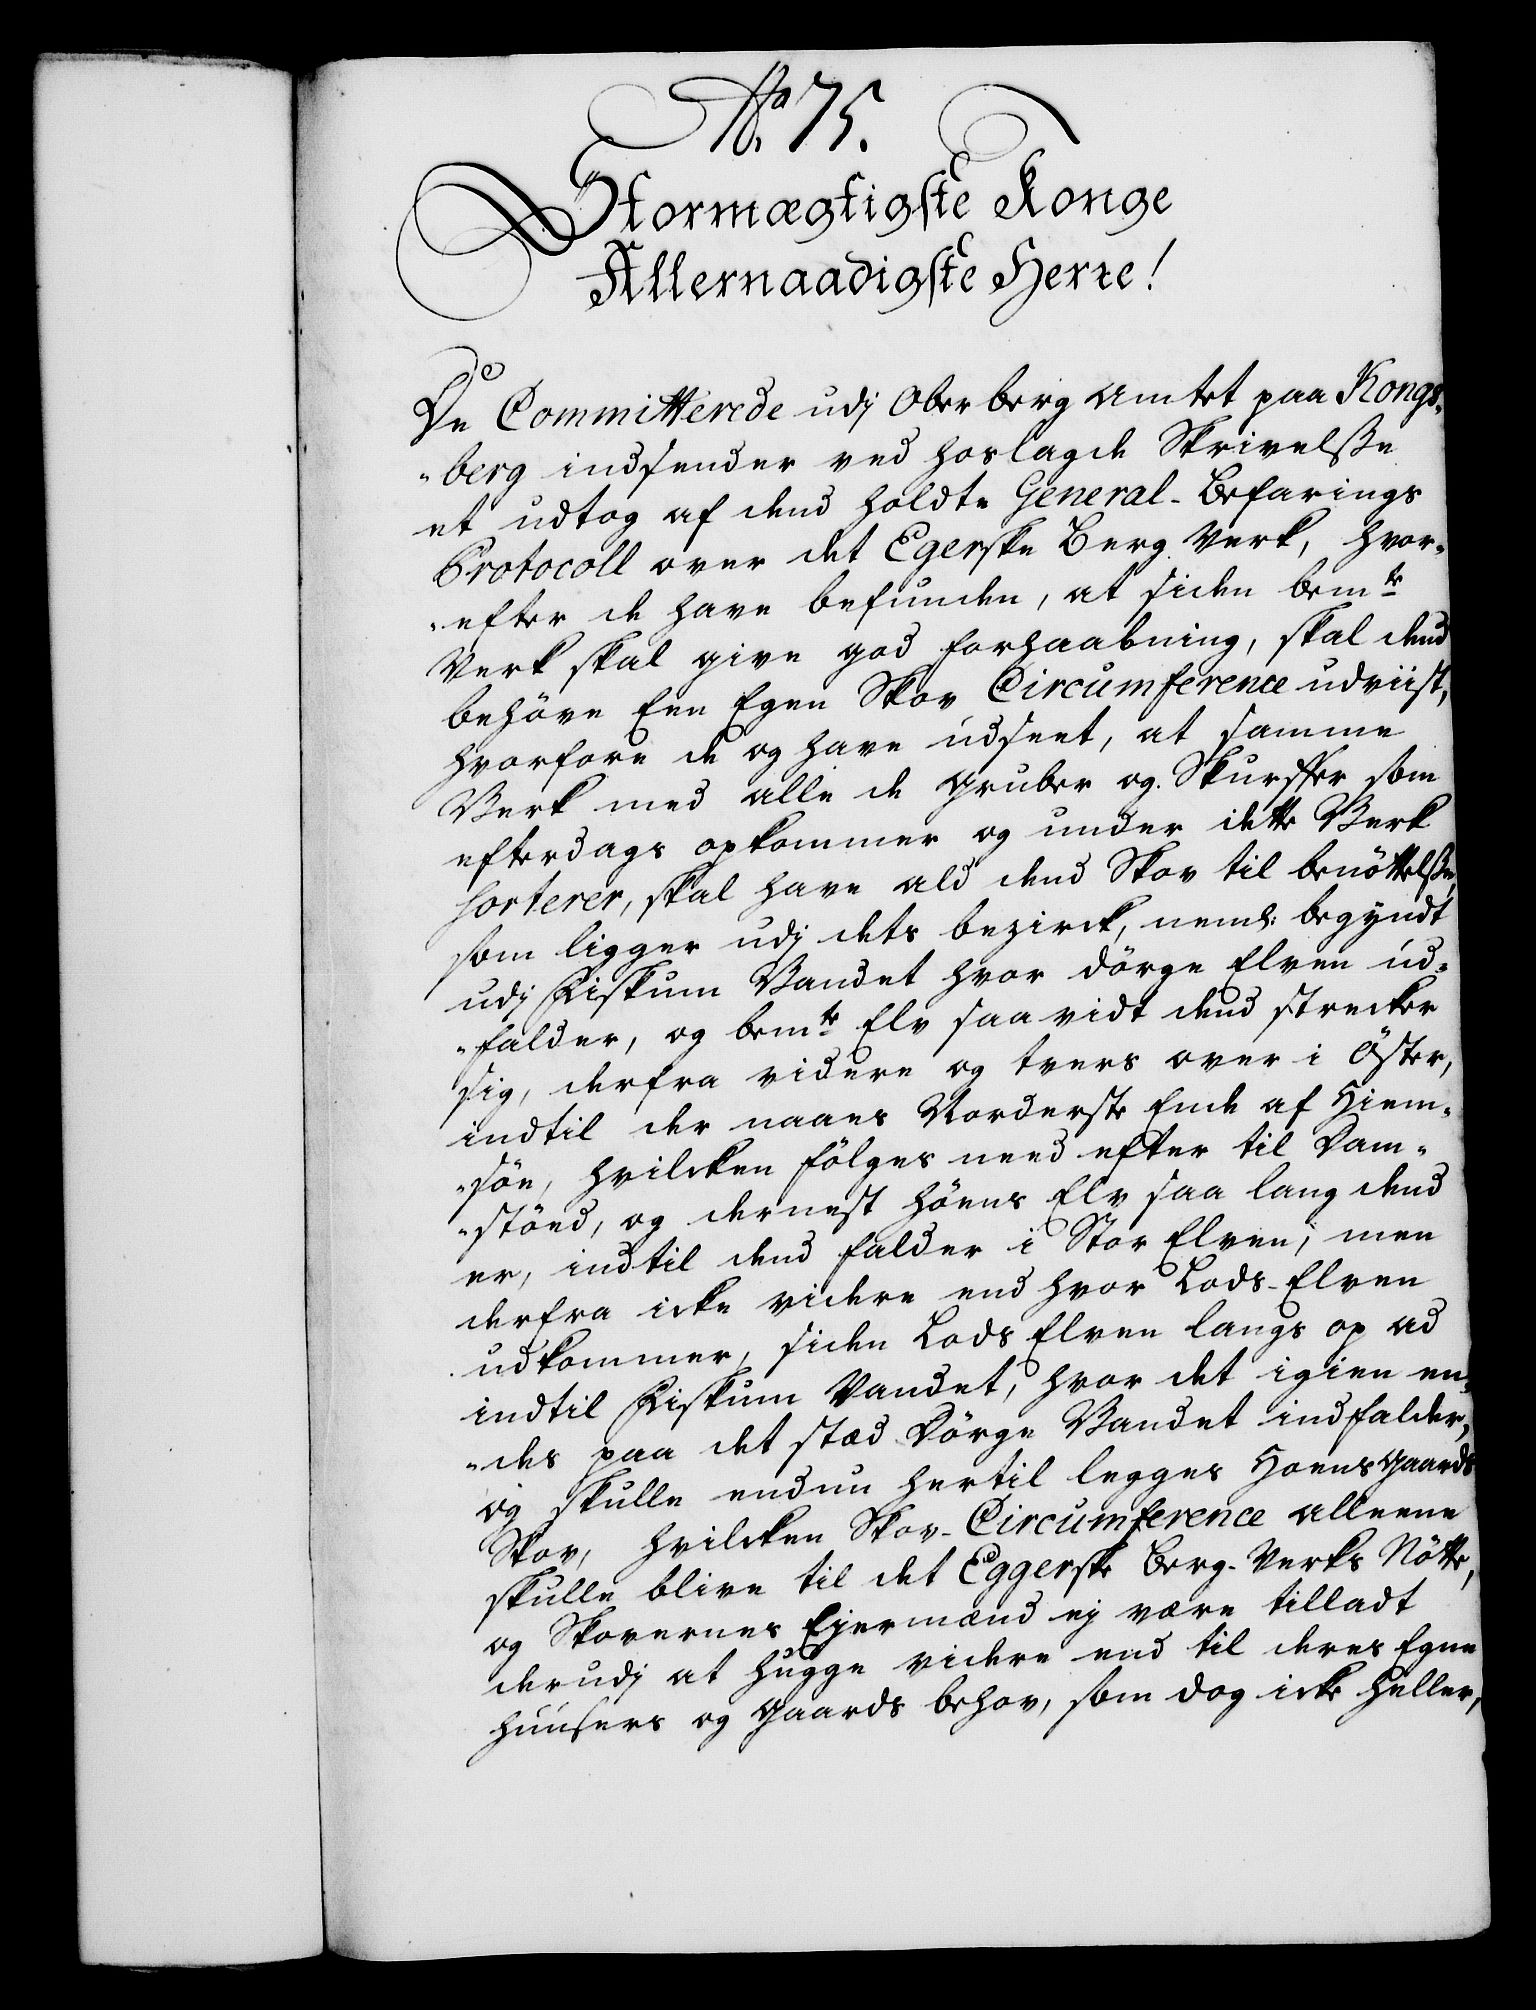 No. 75.
Stormægtigste Konge
Allernaadigste Herre!
De Committerede udj Ober berg Amtet paa Kongs-
-berg indsender ved hoslagde Skrivelsse
et udtog af dend holdte General-Befarings
Protocoll over det Egerske Berg Verk, hvor-
-efter de have befunden, at siden bemte
Verk skal give god forhaabning, skal dend
behöve Een Egen Skov Circumference udviist,
hvorfore de og have udseet, at samme
Verk med alle de Gruber og Skurffer som
efterdags opkommer og under dette Verk
sorterer, skal have ald dend Skov til benöttelsse,
som ligger udj dets bezirck, neml: begyndt
udj Fiskum Vandet hvor Dörge Elven ud-
-falder, og bemte Elv saa vidt dend strecker
sig, derfra videre og tvers over i Öster,
indtil der naaes Norderste Ende af Hiem-
-söe, hvilcken fölges need efter til Dam-
-stöed, og dernest Höens Elv saa lang dend
er, indtil dend falder i Stor Elven; men
derfra icke videre end hvor Lods-Elven
udkommer, siden Lods Elven langs op ad
indtil Fiskum Vandet, hvor det igien en-
-des paa det stæd Dörge Vandet indfalder,
og skulle endnu hertil legges Hoens Gaards
Skov, hvilcken Skov-Circumference alleene
skulle blive til det Eggerske Berg-Verks Nötte,
og Skovernes Ejermænd ej være tilladt
derudj at hugge videre end til deres Egne
huusers og Gaards behov, som dog icke heller,